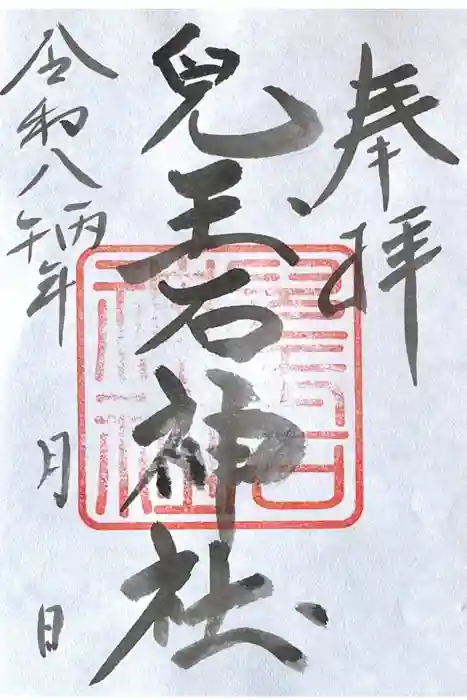 奉拝
兒玉石神社
令和八丙午年 月 日